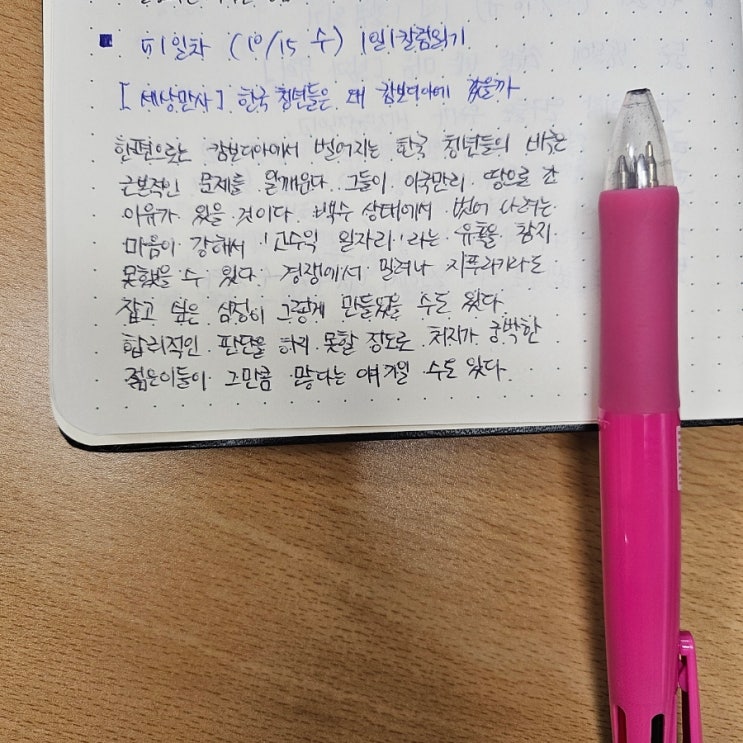 일차 (10/15 수) 1일1칼럼읽기
[세상만사] 한국 청년들은 왜 캄보디아에 갔을까
한편으로는 캄보디아에서 벌어지는 한국 청년들의 비극은
근본적인 문제를 일깨운다. 그들이 이국만리 땅으로 간
이유가 있을 것이다. 백수 상태에서 벗어 나려는
마음이 강해서 '고수익 일자리'라는 유혹을 참지
못했을 수 있다. 경쟁에서 밀려나 지푸라기라도
잡고 싶은 심정이 그렇게 만들었을 수도 있다.
합리적인 판단을 하지 못할 정도로 처지가 궁박한
젊은이들이 그만큼 많다는 얘기일 수도 있다.